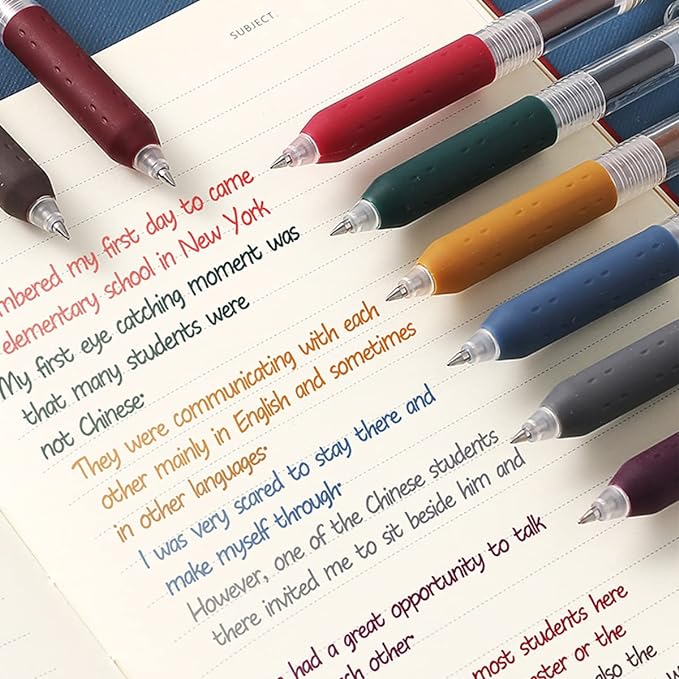 SUBJECT
my first day to came
elementary school in New York
My first eye catching moment was
that many students were
not Chinese.
They were communicating with each
other mainly in English and sometimes
in other languages.
I was very scared to stay there and
make myself through.
However, one of the Chinese students
there invited me to sit beside him and
had a great opportunity to talk
other.
most students here
or the
also the